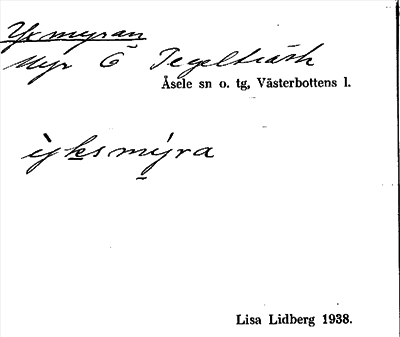 Yxmyran
Myr Ö Tegelträsk
Åsele sn o. tg, Västerbottens l.
ỳksmýra
Lisa Lidberg 1938.